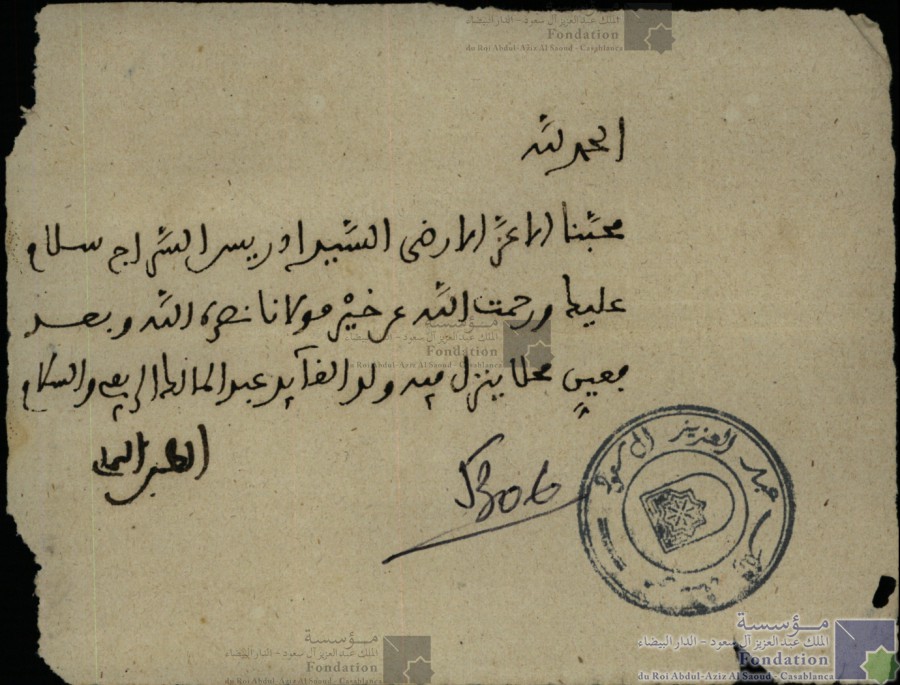 الملك عبد العزيز آل سعود - الدار البيضاء
Fondation
du Roi Abdul-Aziz Al Saoud - Casablanca
الحمد لله
محبنا الاعز الارضى السيد ادريس السراج سلام
عليك ورحمت الله عن خير مولانا نصره الله وبعد
فعين محلا ينزل فيه ولد القايد عبد المالك والسلام
1306
عبد العزيز آل سعود
الملك عبد العزيز آل سعود - الدار البيضاء
Fondation
du Roi Abdul-Aziz Al Saoud - Casablanca
مؤسسة
الملك عبد العزيز آل سعود - الدار البيضاء
Fondation
du Roi Abdul-Aziz Al Saoud - Casablanca
مؤسسة
الملك عبد العزيز آل سعود - الدار البيضاء
Fondation
du Roi Abdul-Aziz Al Saoud - Casablanca